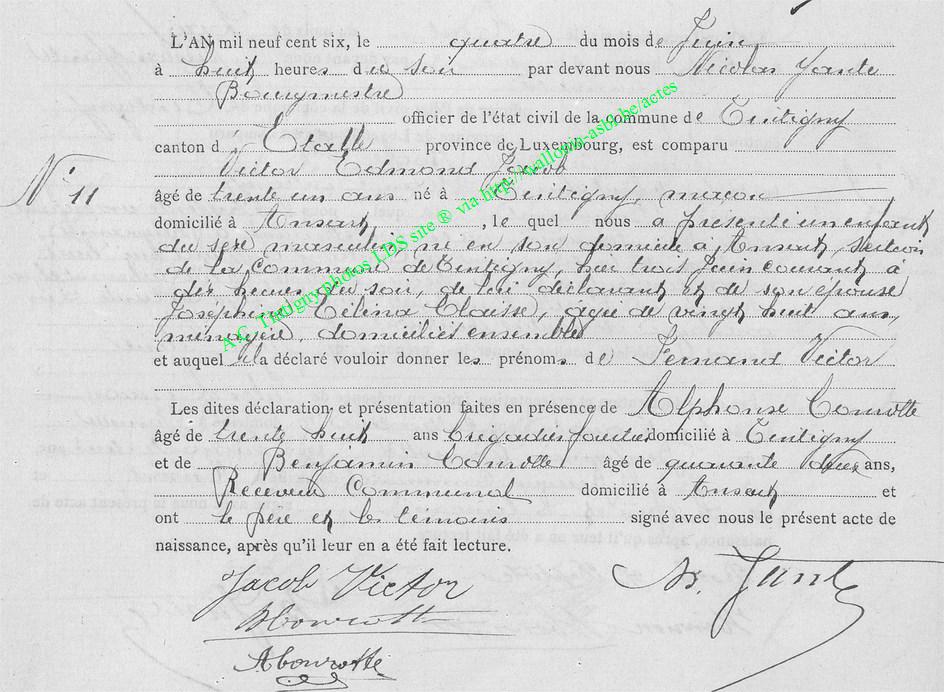 L'AN mil neuf cent six, le quatre du mois de Juin
à huit heures du soir par devant nous Nicolas Jante
Bourgmestre
officier de l'état civil de la commune de Tintigny
canton d Etalle province de Luxembourg, est comparu
Victor Edmond Jacob
N° 11
âgé de trente un ans né à Tintigny, maçon
domicilié à Ansart, le quel nous a présenté un enfant
du sexe masculin, né en son domicile à Ansart, section
de la commune de Tintigny, hier trois Juin courant à
dix heures du soir, de lui déclarant et de son épouse
Joséphine Célina Claisse, âgée de vingt huit ans,
ménagère, domiciliés ensemble
et auquel il a déclaré vouloir donner les prénoms de Fernand Victor
Les dites déclaration et présentation faites en présence de Alphonse Conrotte
âgé de trente huit ans brigadier forestier domicilié à Tintigny
et de Benjamin Conrotte âgé de quarante deux ans,
Receveur Communal domicilié à Ansart et
ont le père et les témoins signé avec nous le présent acte de
naissance, après qu'il leur en a été fait lecture.
Jacob Victor
N. Jante
BConrotte
AConrotte
A.C. Tintigny photos LDS site ® via http://wallonia-asbl.be/actes